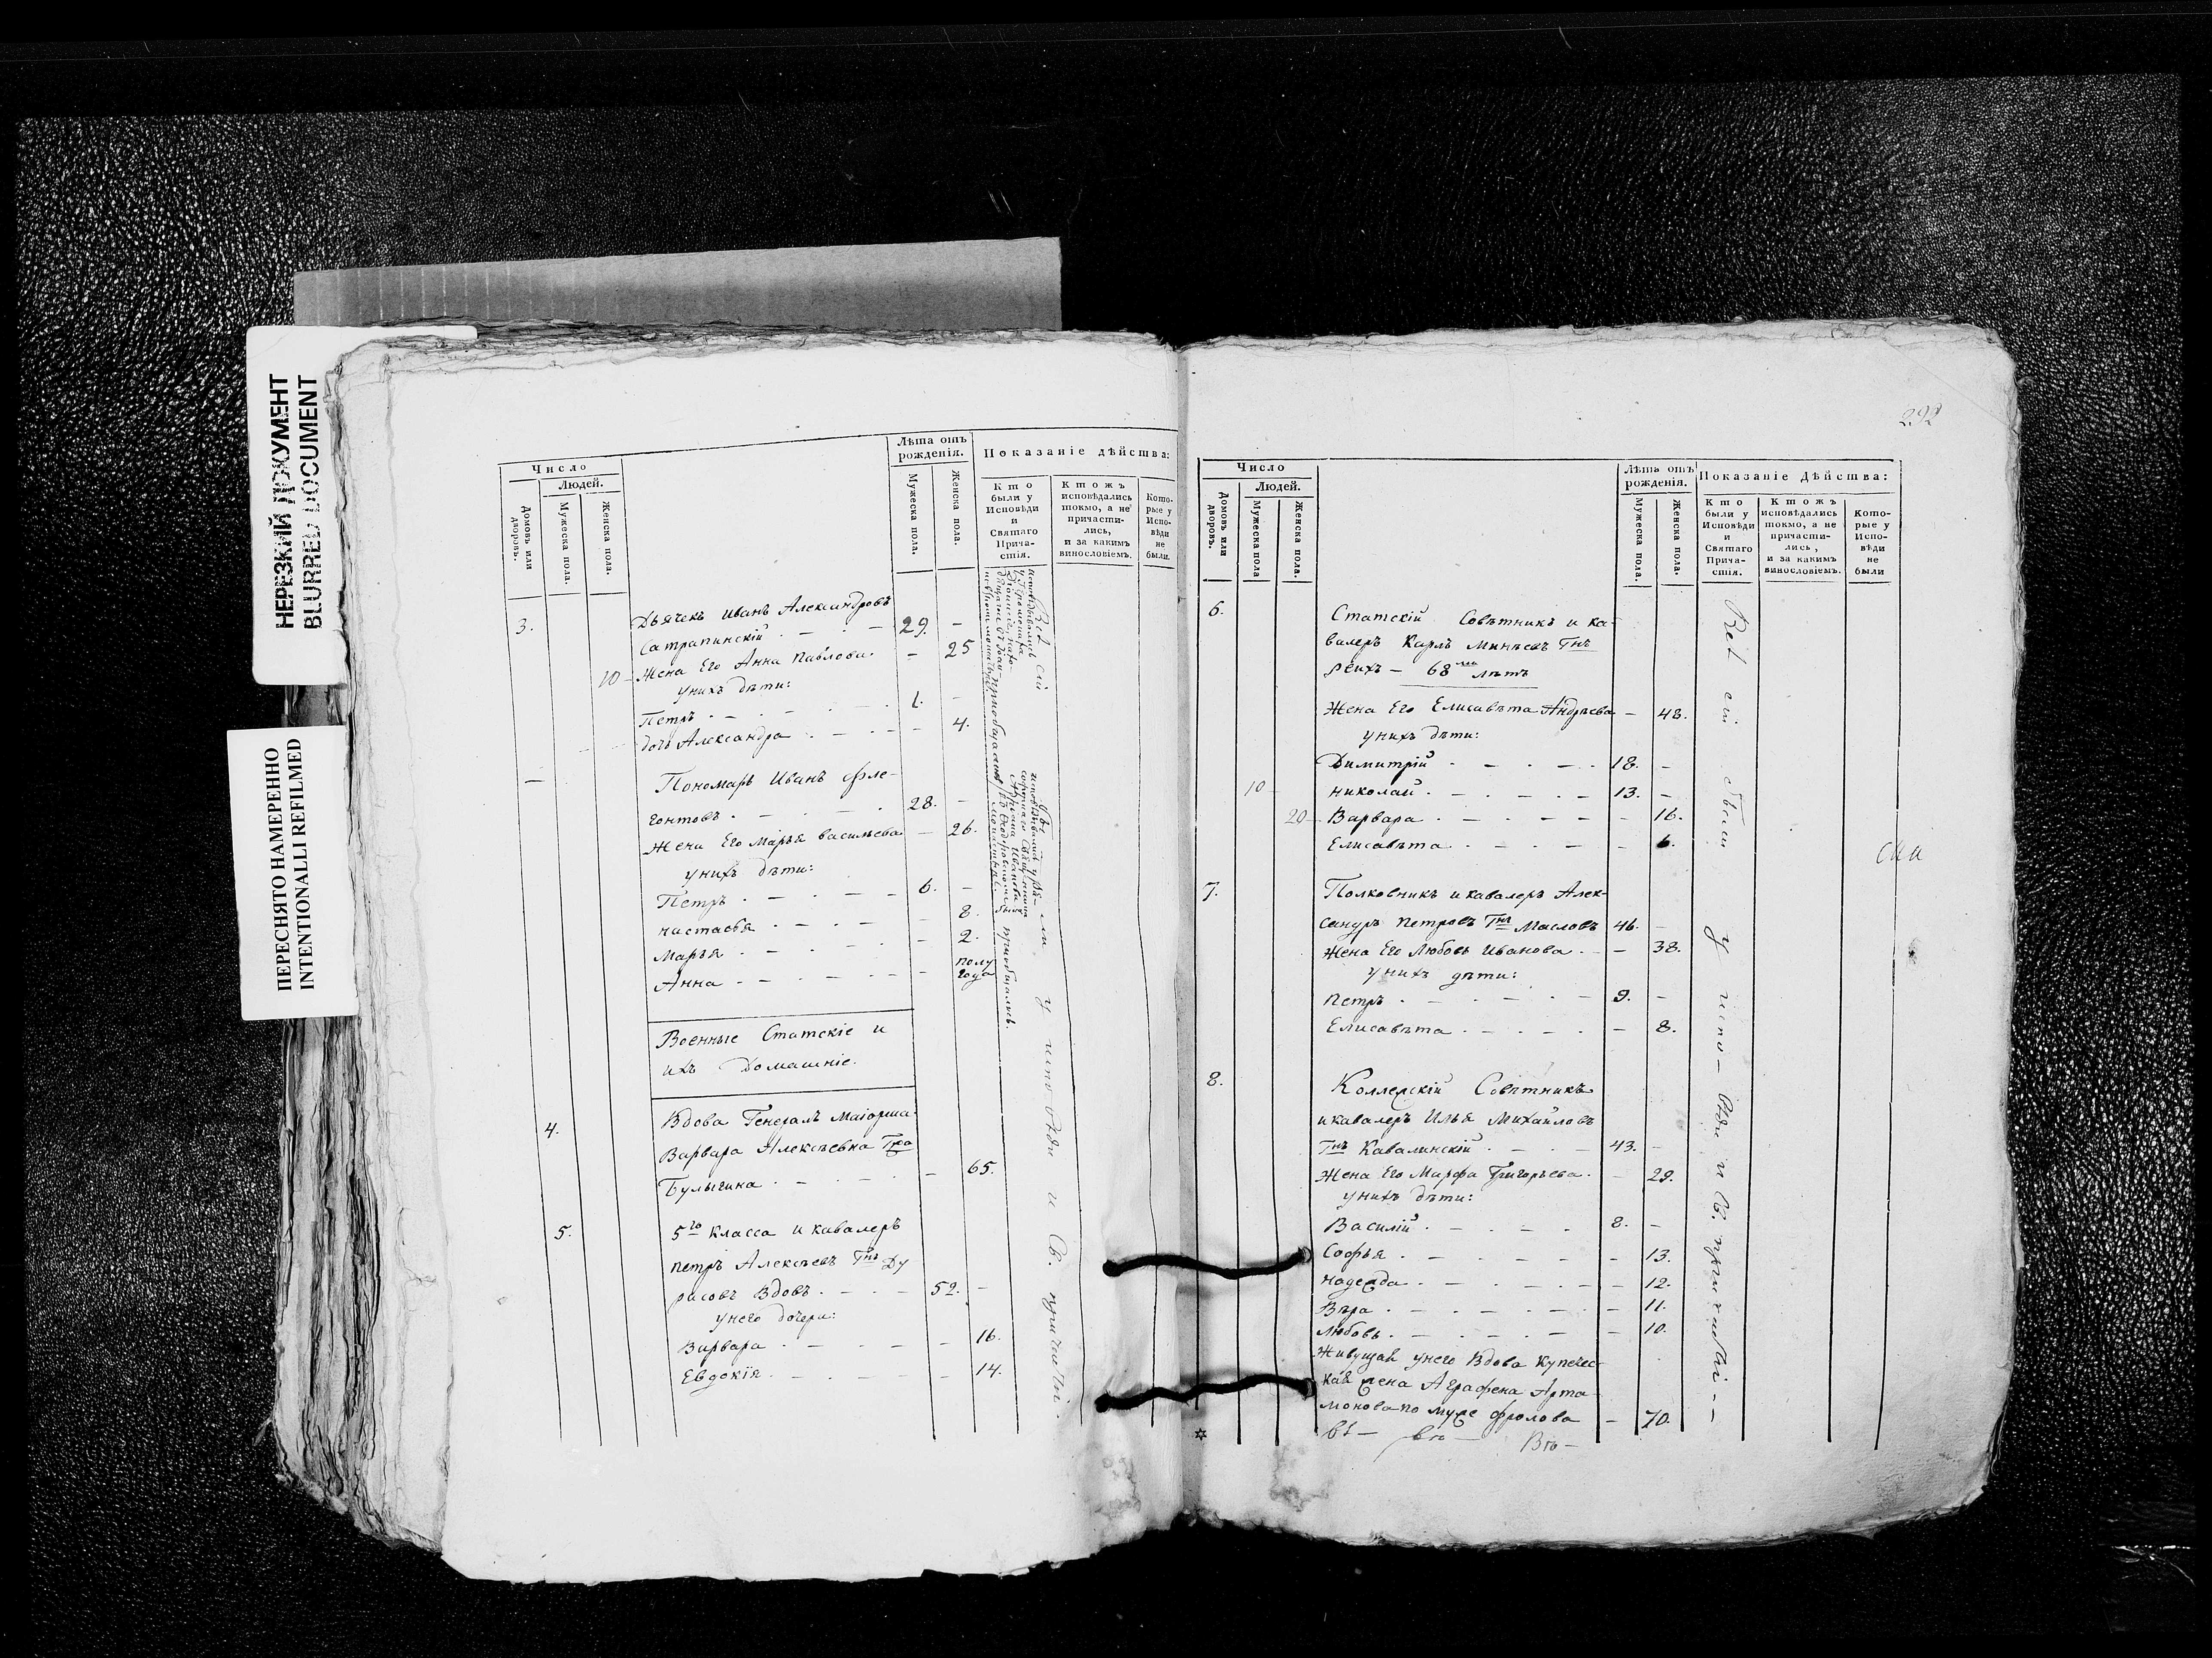 НЕРЕЗКИЙ ДОКУМЕНТ
BLURRED DOCUMENT
ПЕРЕСНЯТО НАМЕРЕННО
INTENTIONALLI REFILMED
Число
Людей.
Домовъ или дворовъ.
Мужеска пола.
Женска пола.
Лѣта отъ
рожденія.
Мужеска пола.
Женска пола.
Показаніе дѣйства:
Кто
были у
Исповѣди
и
Святаго
Прича-
стія.
Ктожъ
исповѣдались
токмо, а не
причасти-
лись,
и за какимъ
винословіемъ.
Кото-
рые у
Испо-
вѣди
не
были.
3. Дьячекъ Иванъ Александровъ
Сатрапинскій . — . — 29. —
10 — Жена Его Анна Павлова. — 25
унихъ дѣти:
Петръ . — . — . — . 1. —
дочь Александра . — . — — 4.
— Пономарь Иванъ Фле-
гонтовъ . — . — . 28. —
Жена Его Марья васильева — 26.
унихъ дѣти:
Петръ . — . — — 6. —
настасья . — . — — 8.
Марья . — . — — 2.
Анна . — . — . — — полу
года
Военные Статскіе и
ихъ Домашніе.
4. Вдова Генералъ Маіорша
Варвара Алексѣевна Гжа
Булыгина . — . — . — 65.
5. 5го класса и кавалеръ
петръ Алексѣевъ Гнъ Ду
расовъ Вдовъ . — . — 52. —
унего дочери:
Варвара . — . — — 16.
Евдокія . — . — — 14.
Всѣ сіи у исповѣди и Св. причастія.
292
Число
Людей.
Домовъ или дворовъ.
Мужеска пола
Женска пола.
Лѣта отъ
рожденія.
Мужеска пола.
Женска пола.
Показаніе Дѣйства:
Кто
были у
Исповѣди
и
Святаго
Прича-
стія.
Ктожъ
исповѣдались
токмо, а не
причасти-
лись,
и за какимъ
винословіемъ.
Кото-
рые у
Испо-
вѣди
не
были
6. Статскій Совѣтникъ и ка-
валеръ Карлъ Гнъ
68 лѣтъ
Жена Его Елисавѣта Андрѣева — 48.
унихъ дѣти:
Димитрій . — . — . 18. —
10 — николай . — . — — 13. —
20 — Варвара . — . — — 16.
Елисавѣта . — . — — 6.
7. Полковникъ и кавалеръ Алек-
сандръ Петровъ Гнъ Масловъ 46. —
Жена Его Любовь Иванова . — 38.
унихъ дѣти:
петръ . — . — . — 9. —
Елисавѣта . — . — . — 8.
8. Коллежскій Совѣтникъ
и кавалеръ Илья Михайловъ
Гнъ Кавалинскій . — . — 43. —
Жена Его Марфа Григорьева . — 29.
унихъ дѣти:
Василій . — . — . 8. —
Софья . — . — . — 13.
надежда . — . — . — 12.
Вѣра . — . — . — 11.
Любовь . — . — . — 10.
Живущая унего Вдова Купечес-
кая жена Аграфена Арта
монова по муже Фролова — 70.
Всѣ сіи были у исповѣди и Св. причастія —